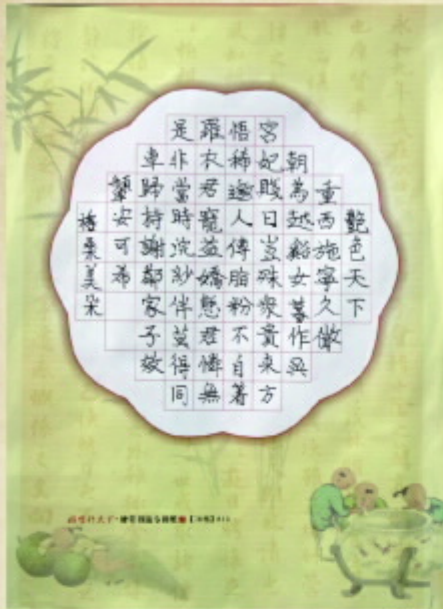 艷色天下
重西施寧久微
朝為越谿女暮作吳
宮妃賤日豈殊眾貴來方
悟稀邀人傅脂粉不自著
羅衣君寵益嬌態君憐無
是非當時浣紗伴莫得同
車歸持謝鄰家子效
顰安可希
美朵